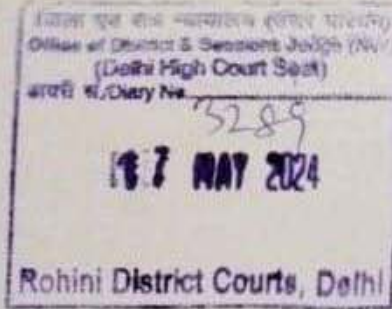 जिला एवं सत्र न्यायाधीश
Office of District & Sessions Judge
(Delhi High Court Seat)
डायरी सं./Diary No.
3289
17 MAY 2024
Rohini District Courts, Delhi